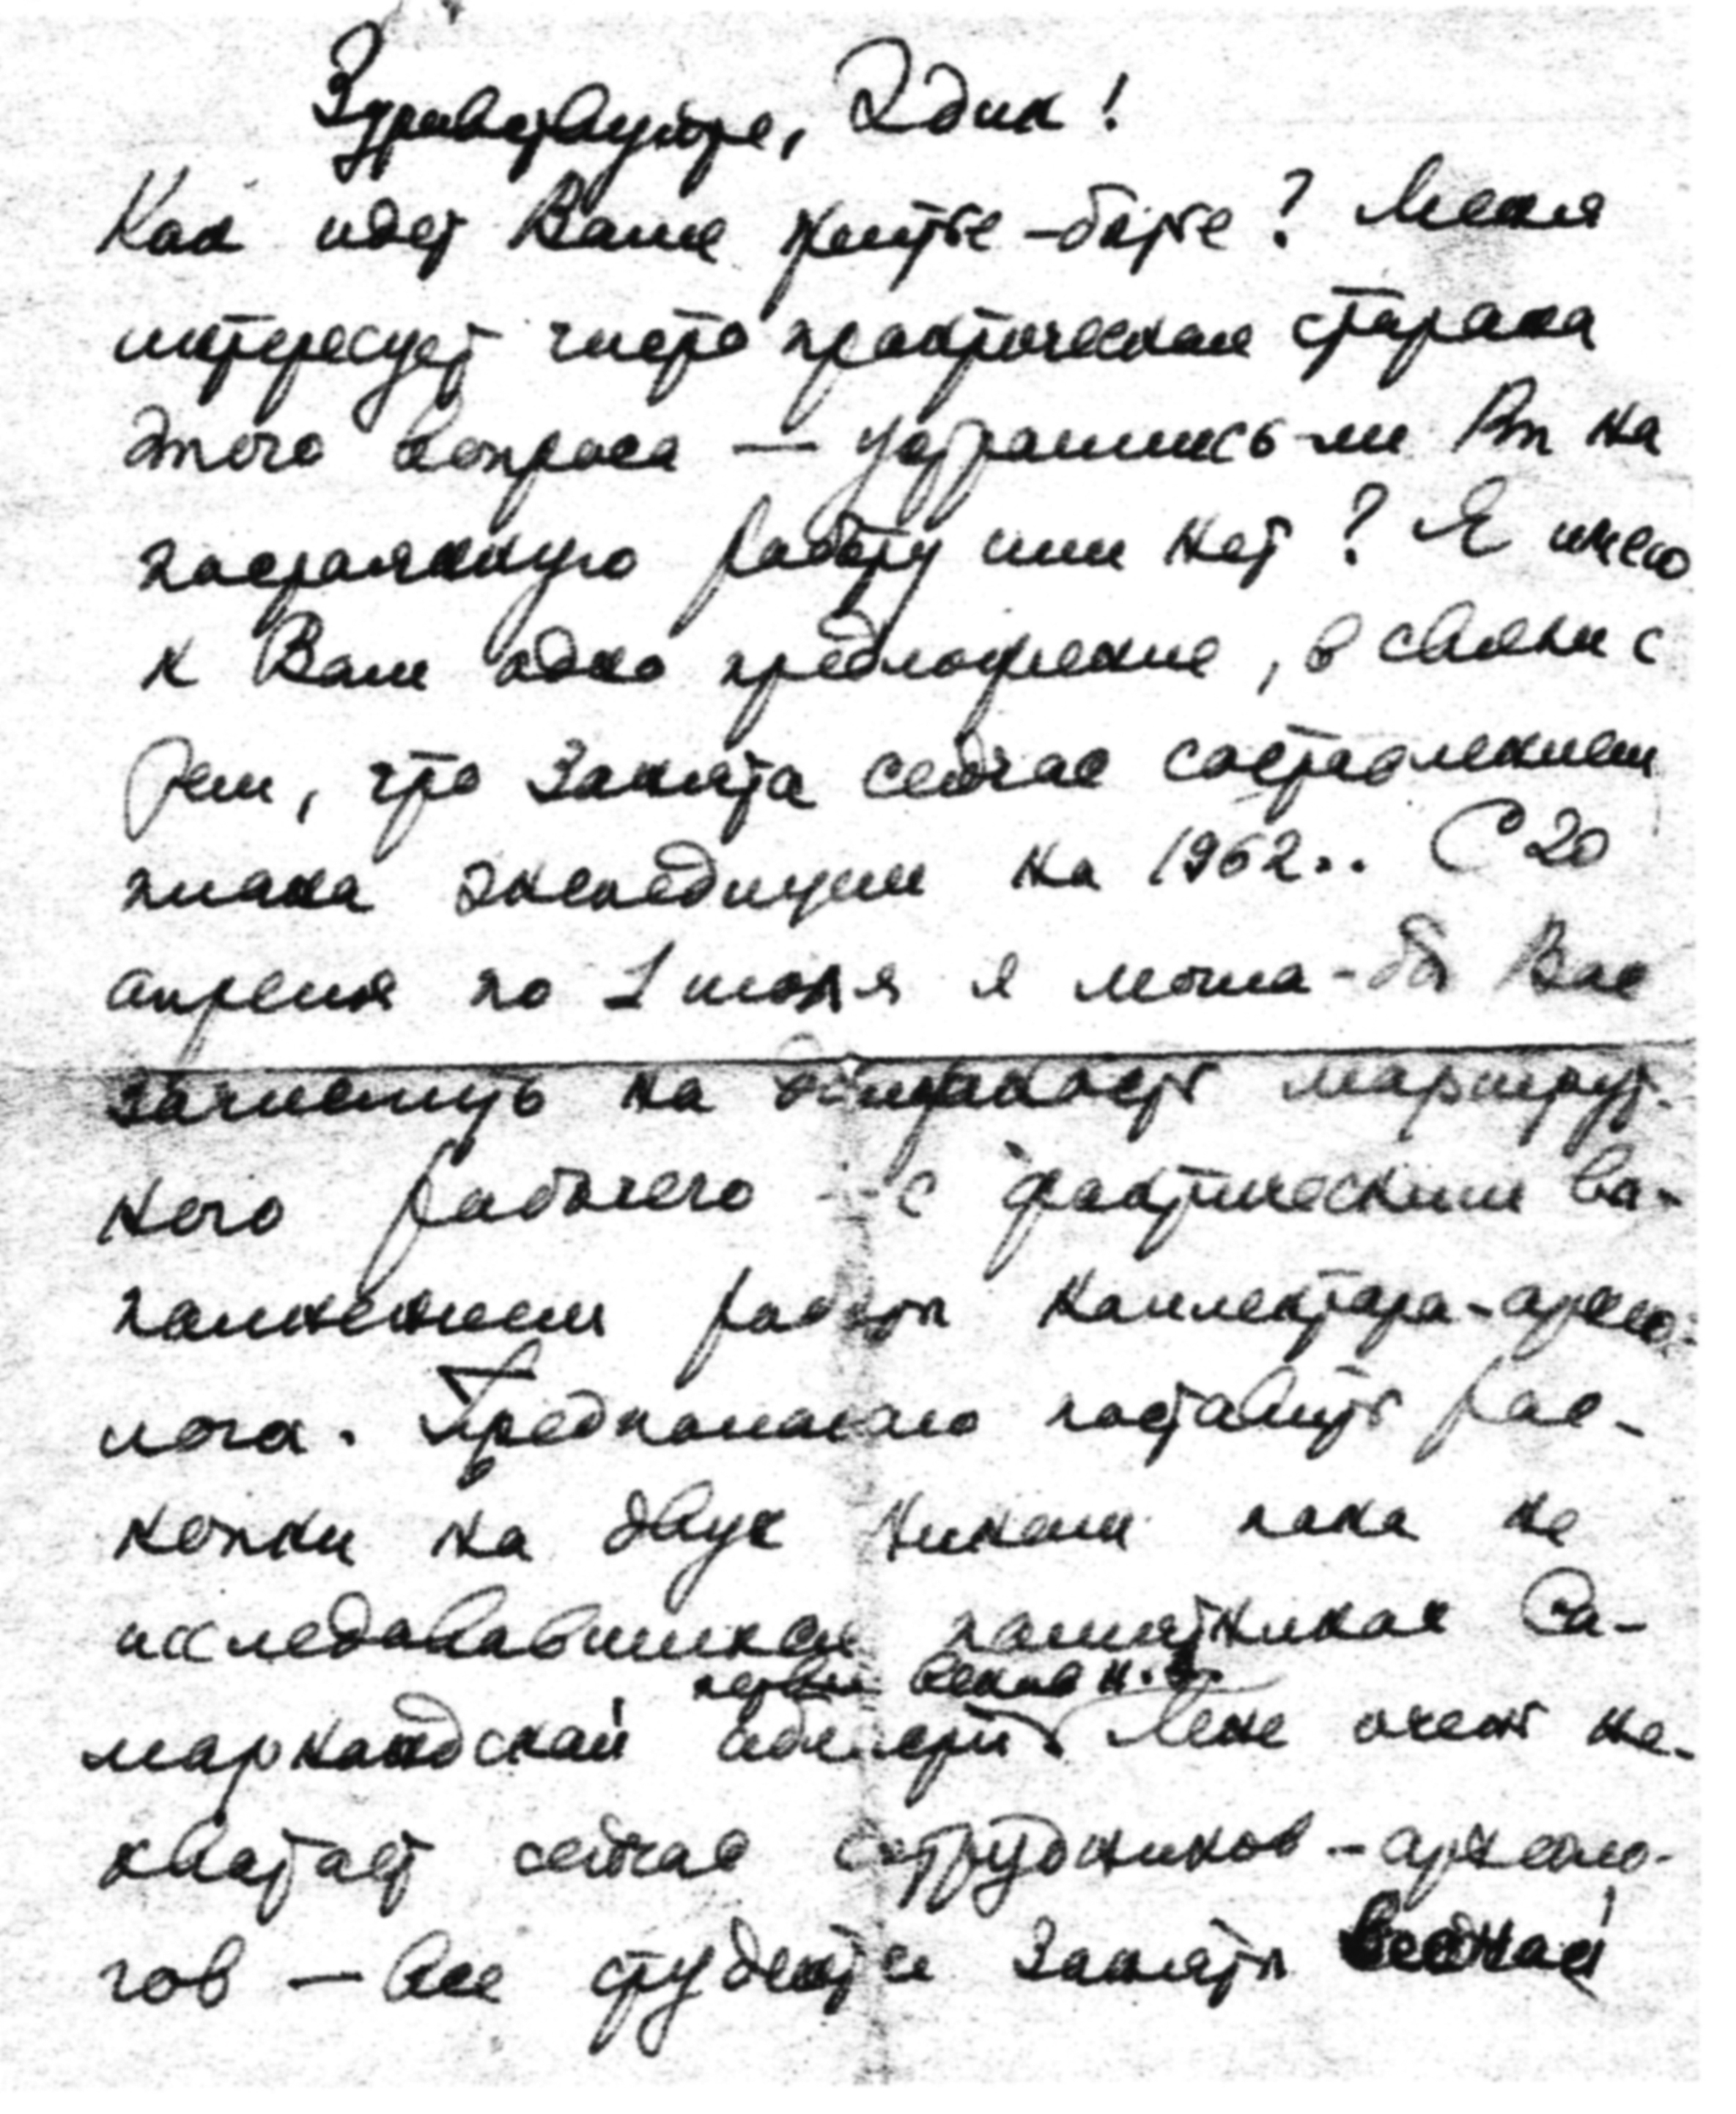 Здравствуйте, Эдик!
Как идет Ваше житье-бытье? Меня
интересует чисто практическая сторона
этого вопроса — устроились-ли Вы на
постоянную работу или нет? Я имею
к Вам одно предложение, в связи с
тем, что занята сейчас составлением
плана экспедиции на 1962.. С 20
апреля по 1 июля я могла-бы Вас
зачислить на должность маршрут-
ного рабочего - с фактическим вы-
полнением работы коллектора-архео-
лога. Предполагаю поставить рас-
копки на двух никем пока не
исследовавшихся памятниках Са-
первых веков н.э.
маркандской области. Мне очень не-
хватает сейчас сотрудников-архео-
гов — все студенты заняты весной